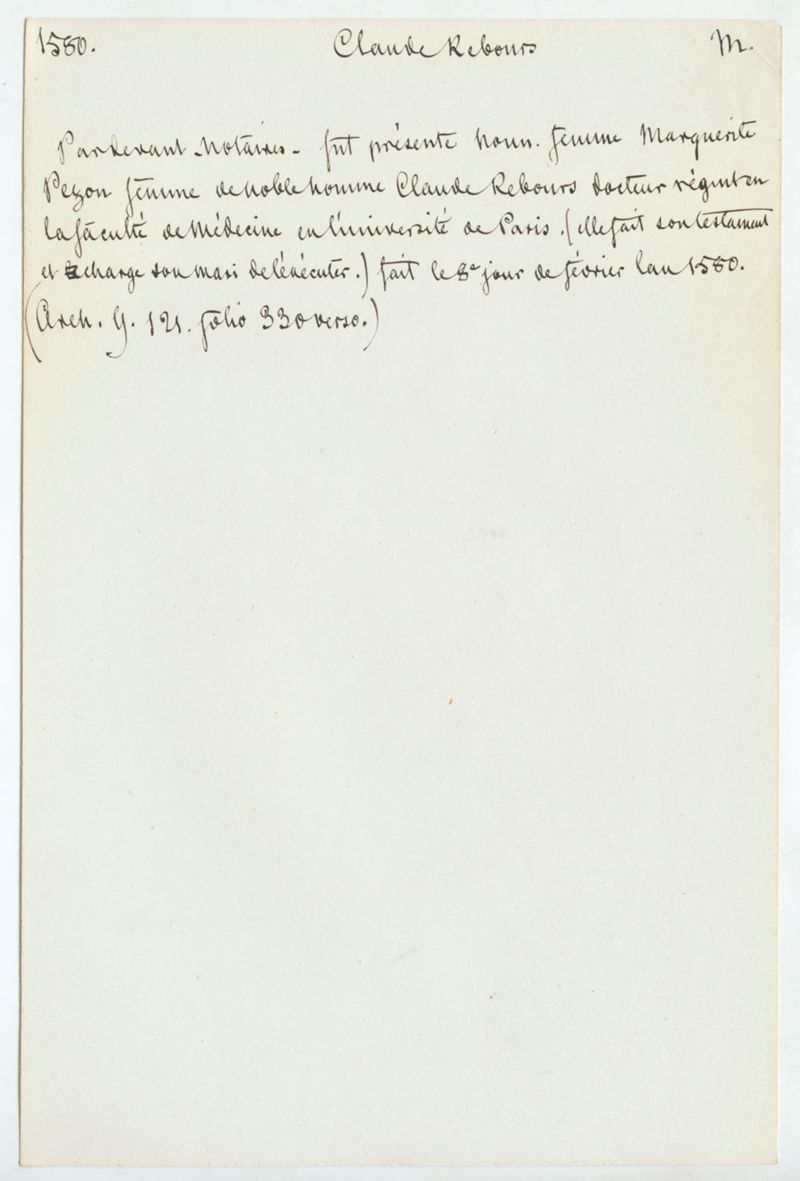 1580. Claude Rebours M.
Pardevant Notaires - fut présente honn. femme Marguerite
Pezon femme de noble homme Claude Rebours docteur régent en
la faculté de Médecine en l'université de Paris. (elle fait son testament
et charge son mari de l'exécuter.) fait le 8e jour de février lan 1580.
(Arch. Y. 121. folio 330 verso.)